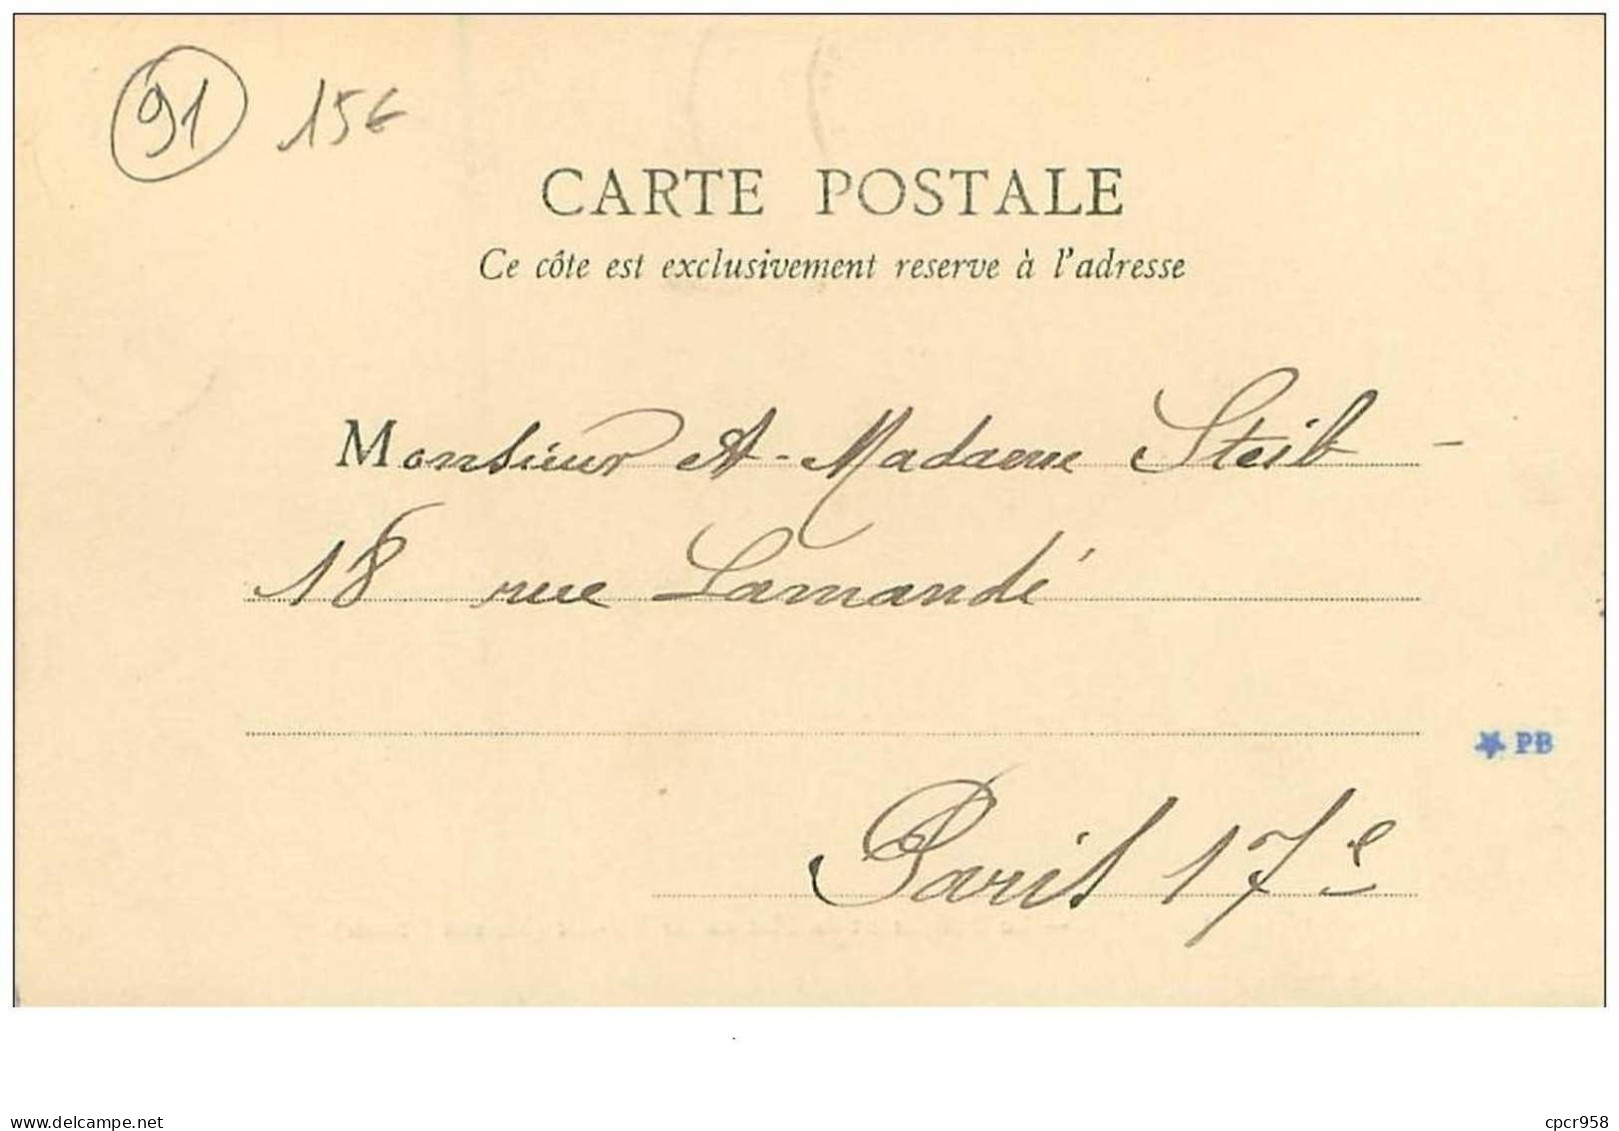 91 15€
CARTE POSTALE
Ce côte est exclusivement reserve à l'adresse
Monsieur et Madame Steib
18 rue Lamandé
PB
Paris 17e
delcampe.net
cpcr958